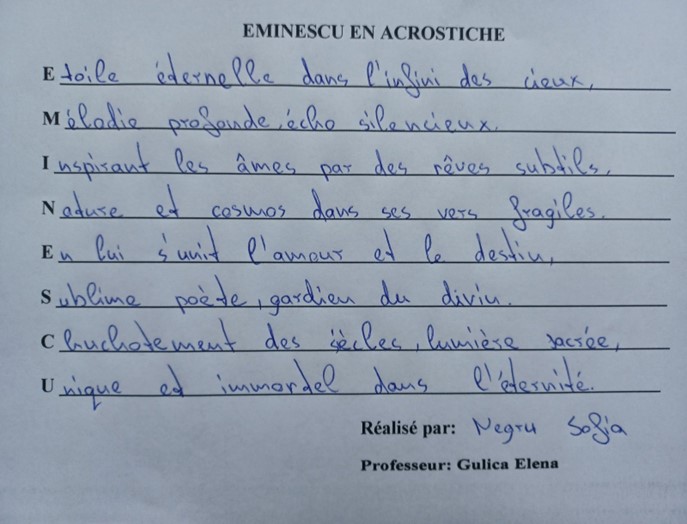 EMINESCU EN ACROSTICHE
Etoile éternelle dans l'infini des cieux,
Mélodie profonde, écho silencieux.
Inspirant les âmes par des rêves subtils,
Nature et cosmos dans ses vers fragiles.
En lui s'unit l'amour et le destin,
Sublime poète, gardien du divin.
Chuchotement des siècles, lumière sacrée,
Unique et immortel dans l'éternité.
Réalisé par: Negru Sofia
Professeur: Gulica Elena